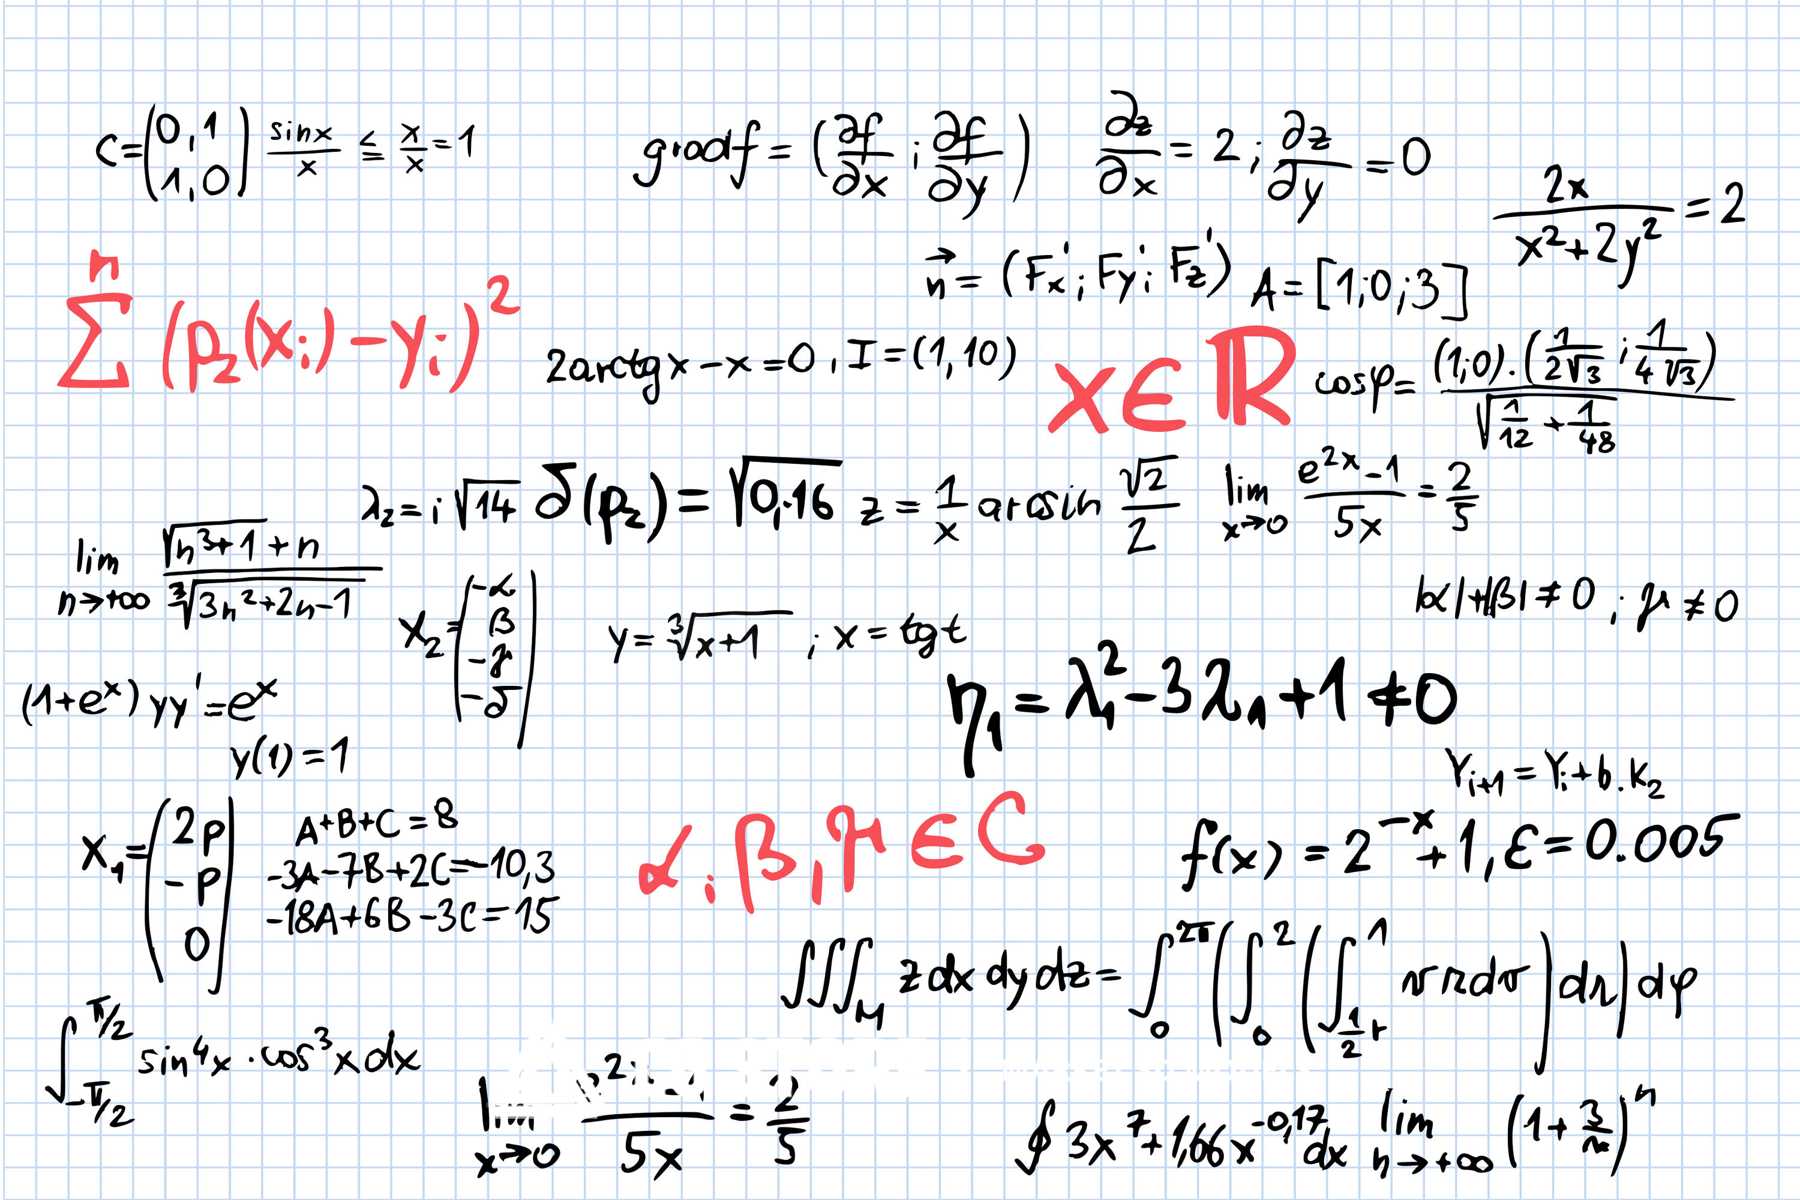 C=(0,1 1,0) sinx/x ≦ x/x=1
gradf=(∂f/∂x ; ∂f/∂y) ∂z/∂x=2; ∂z/∂y=0
2x/(x²+2y²)=2
n⃗=(Fx'; Fy'; Fz') A=[1;0;3]
n∑(p₂(xᵢ)-yᵢ)²
2arctgx-x=0, I=(1,10)
x∈ℝ
cosφ=(1;0).(1/2√3 ; 1/4√3)/√(1/12+1/48)
λ₂=i√14 δ(p₂)=√0,16
z=1/x arcsin √2/2
lim x→0 (e^2x-1)/5x=2/5
lim n→+∞ (√(n³+1)+n)/∛(3n²+2n-1)
X₂=(-α β -γ -δ)
y=∛(x+1) ; x=tgt
|α|+|β|≠0 ; γ≠0
(1+eˣ)yy'=eˣ
y(1)=1
η₁=λ₁²-3λ₁+1≠0
Yᵢ₊₁=Yᵢ+b.K₂
X₁=(2p -p 0)
A+B+C=8
-3A-7B+2C=-10,3
-18A+6B-3C=15
α,β,γ∈C
f(x)=2^-x+1, ε=0.005
∭M zdxdydz=∫0^2π(∫0^2(∫½r^1 vrdv)dr)dφ
∫-π/2^π/2 sin⁴x.cos³xdx
lim x→0 /5x=2/5
∮3x⁷+1,66x^-0,17dx
lim n→+∞ (1+3/n)ⁿ